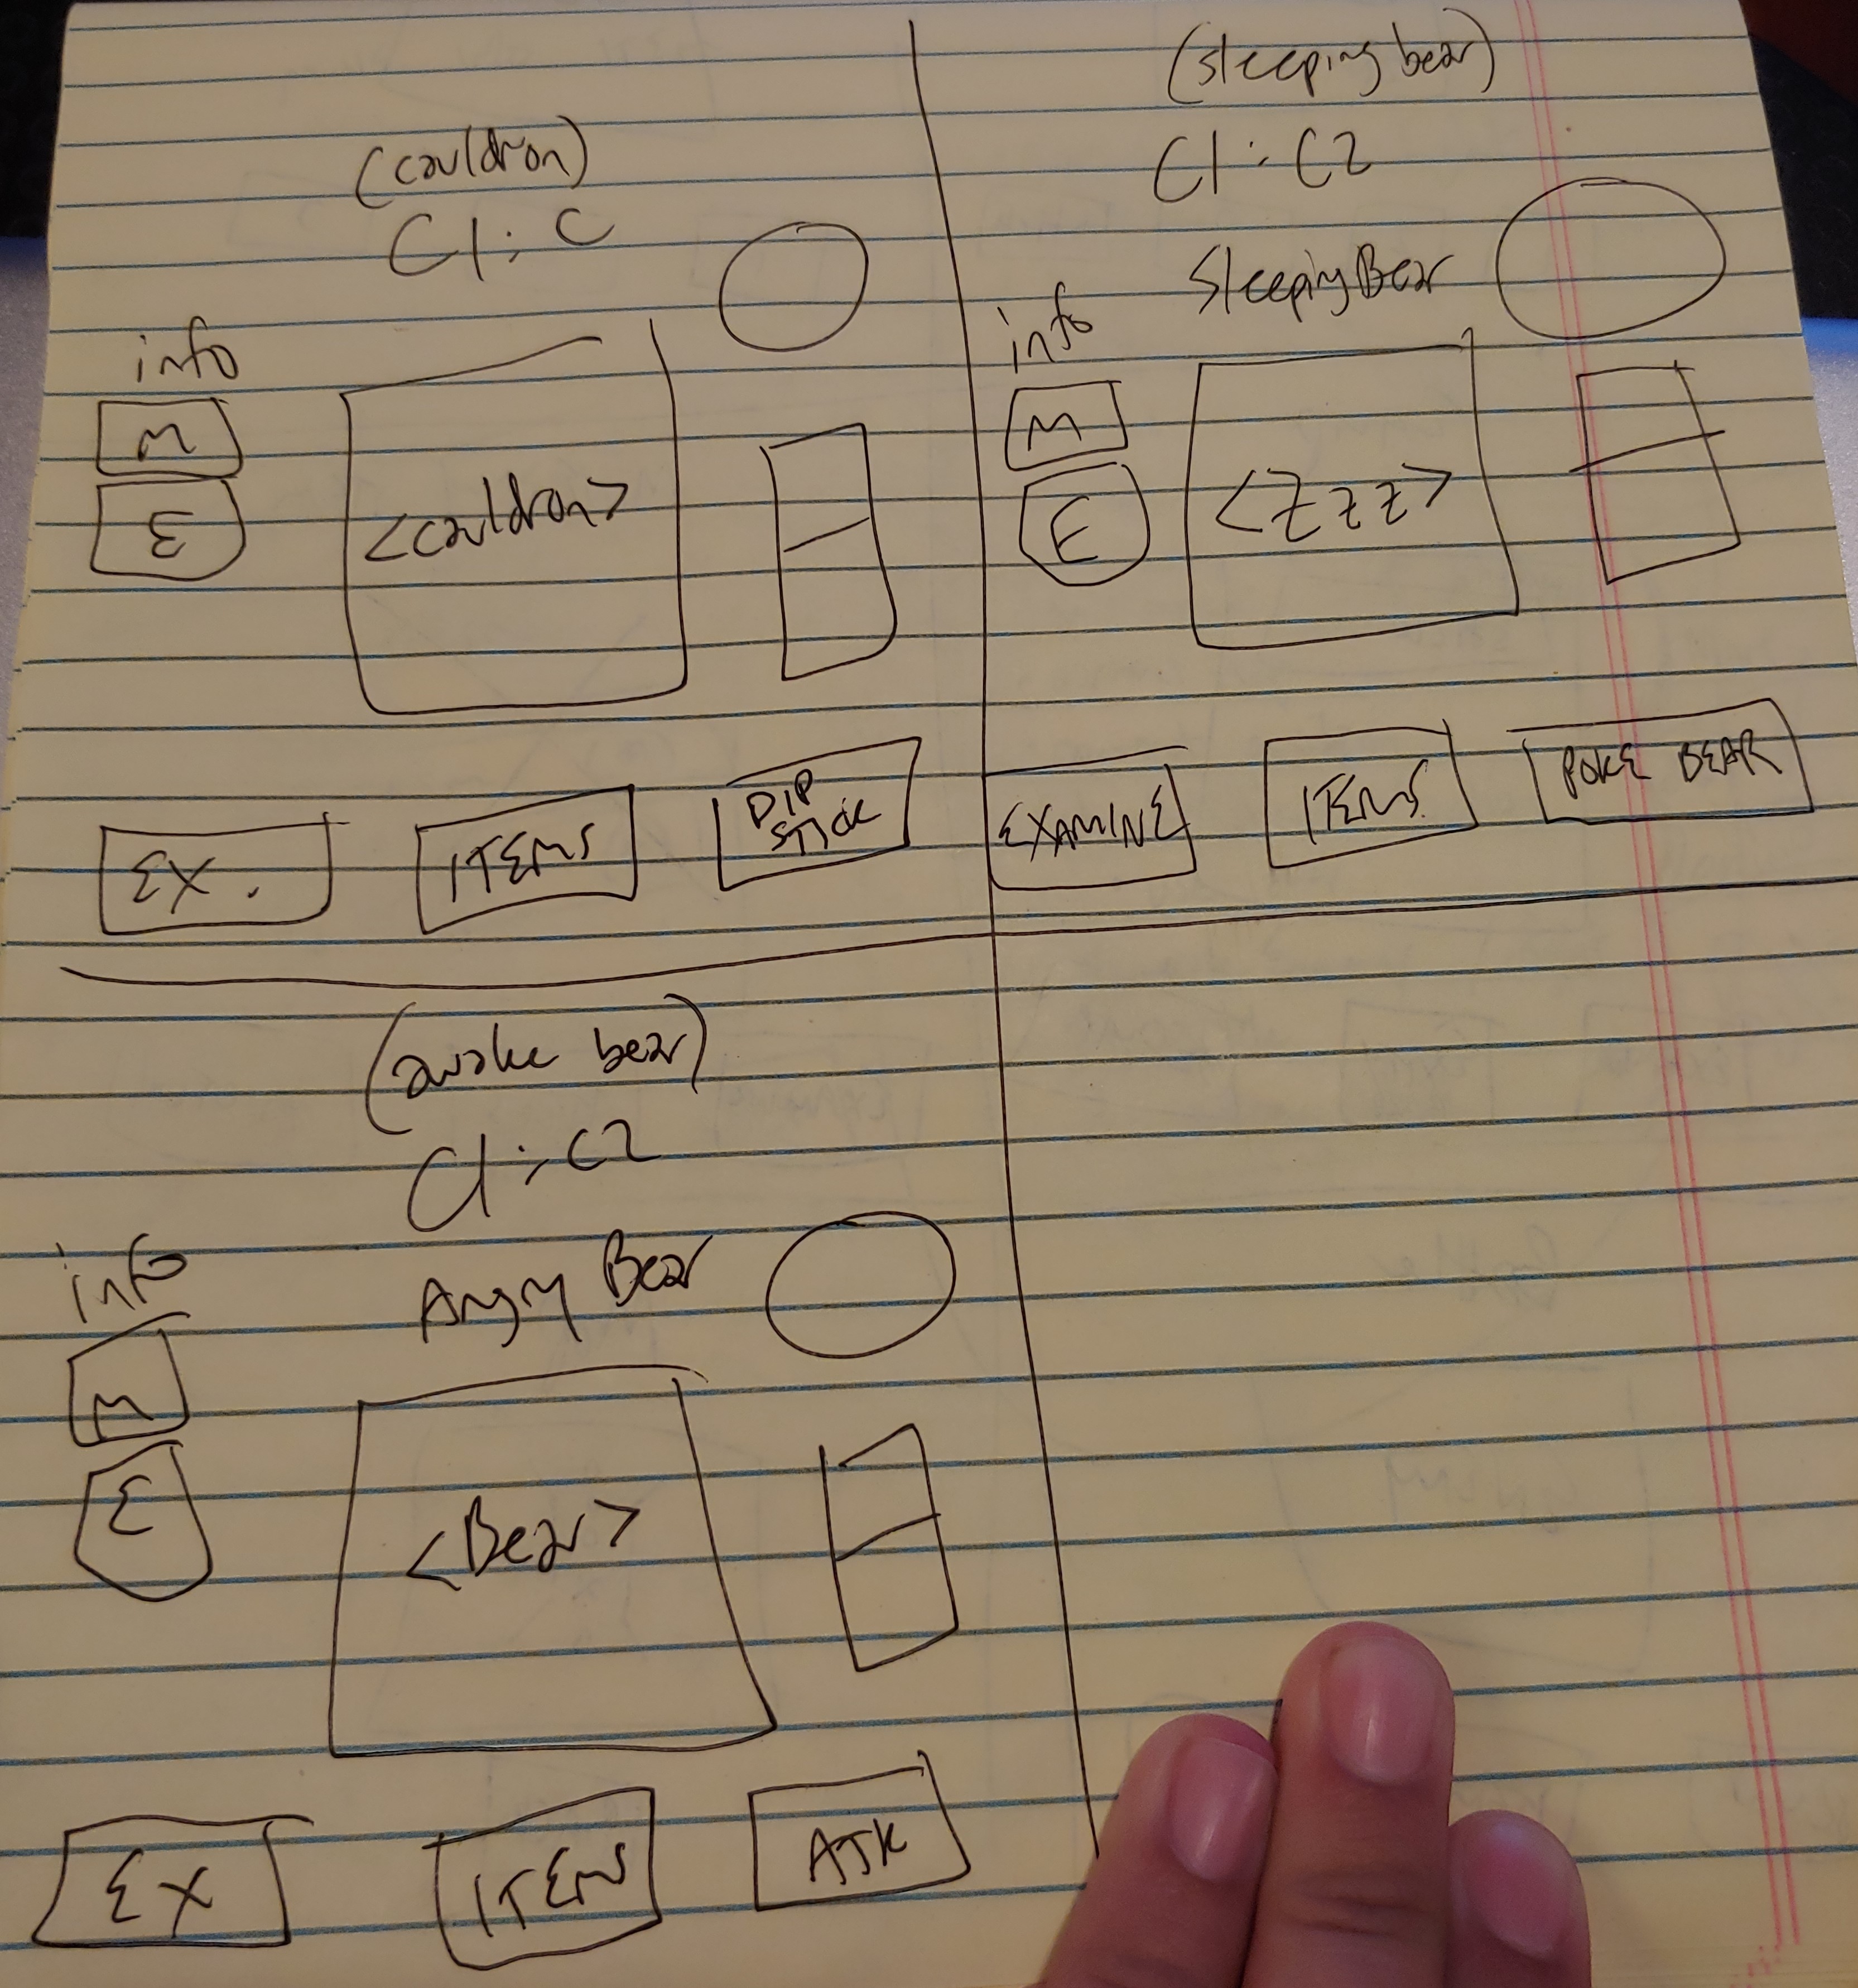 (cauldron)
C1: C
info
M
E
<cauldron>
EX.
ITEMS
DIP
STICK
(sleeping bear)
C1: C2
Sleeping Bear
info
M
E
<Zzz>
EXAMINE
ITEMS
POKE BEAR
(awake bear)
C1: C2
info
Angry Bear
M
E
<Bear>
EX
ITEMS
ATK